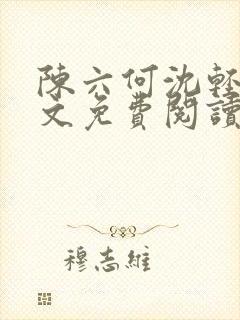 陳六何沈輕
文免費閱讀
穆志維